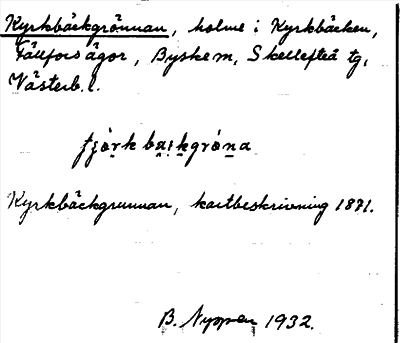 Kyrkbäckgrönnan, holme i Kyrkbäcken,
Fällfors ägor, Byske m, Skellefteå tg,
Västerb. l.
Kyrkbäckgrunnan, kartbeskrivning 1871.
B. Nyman 1932.